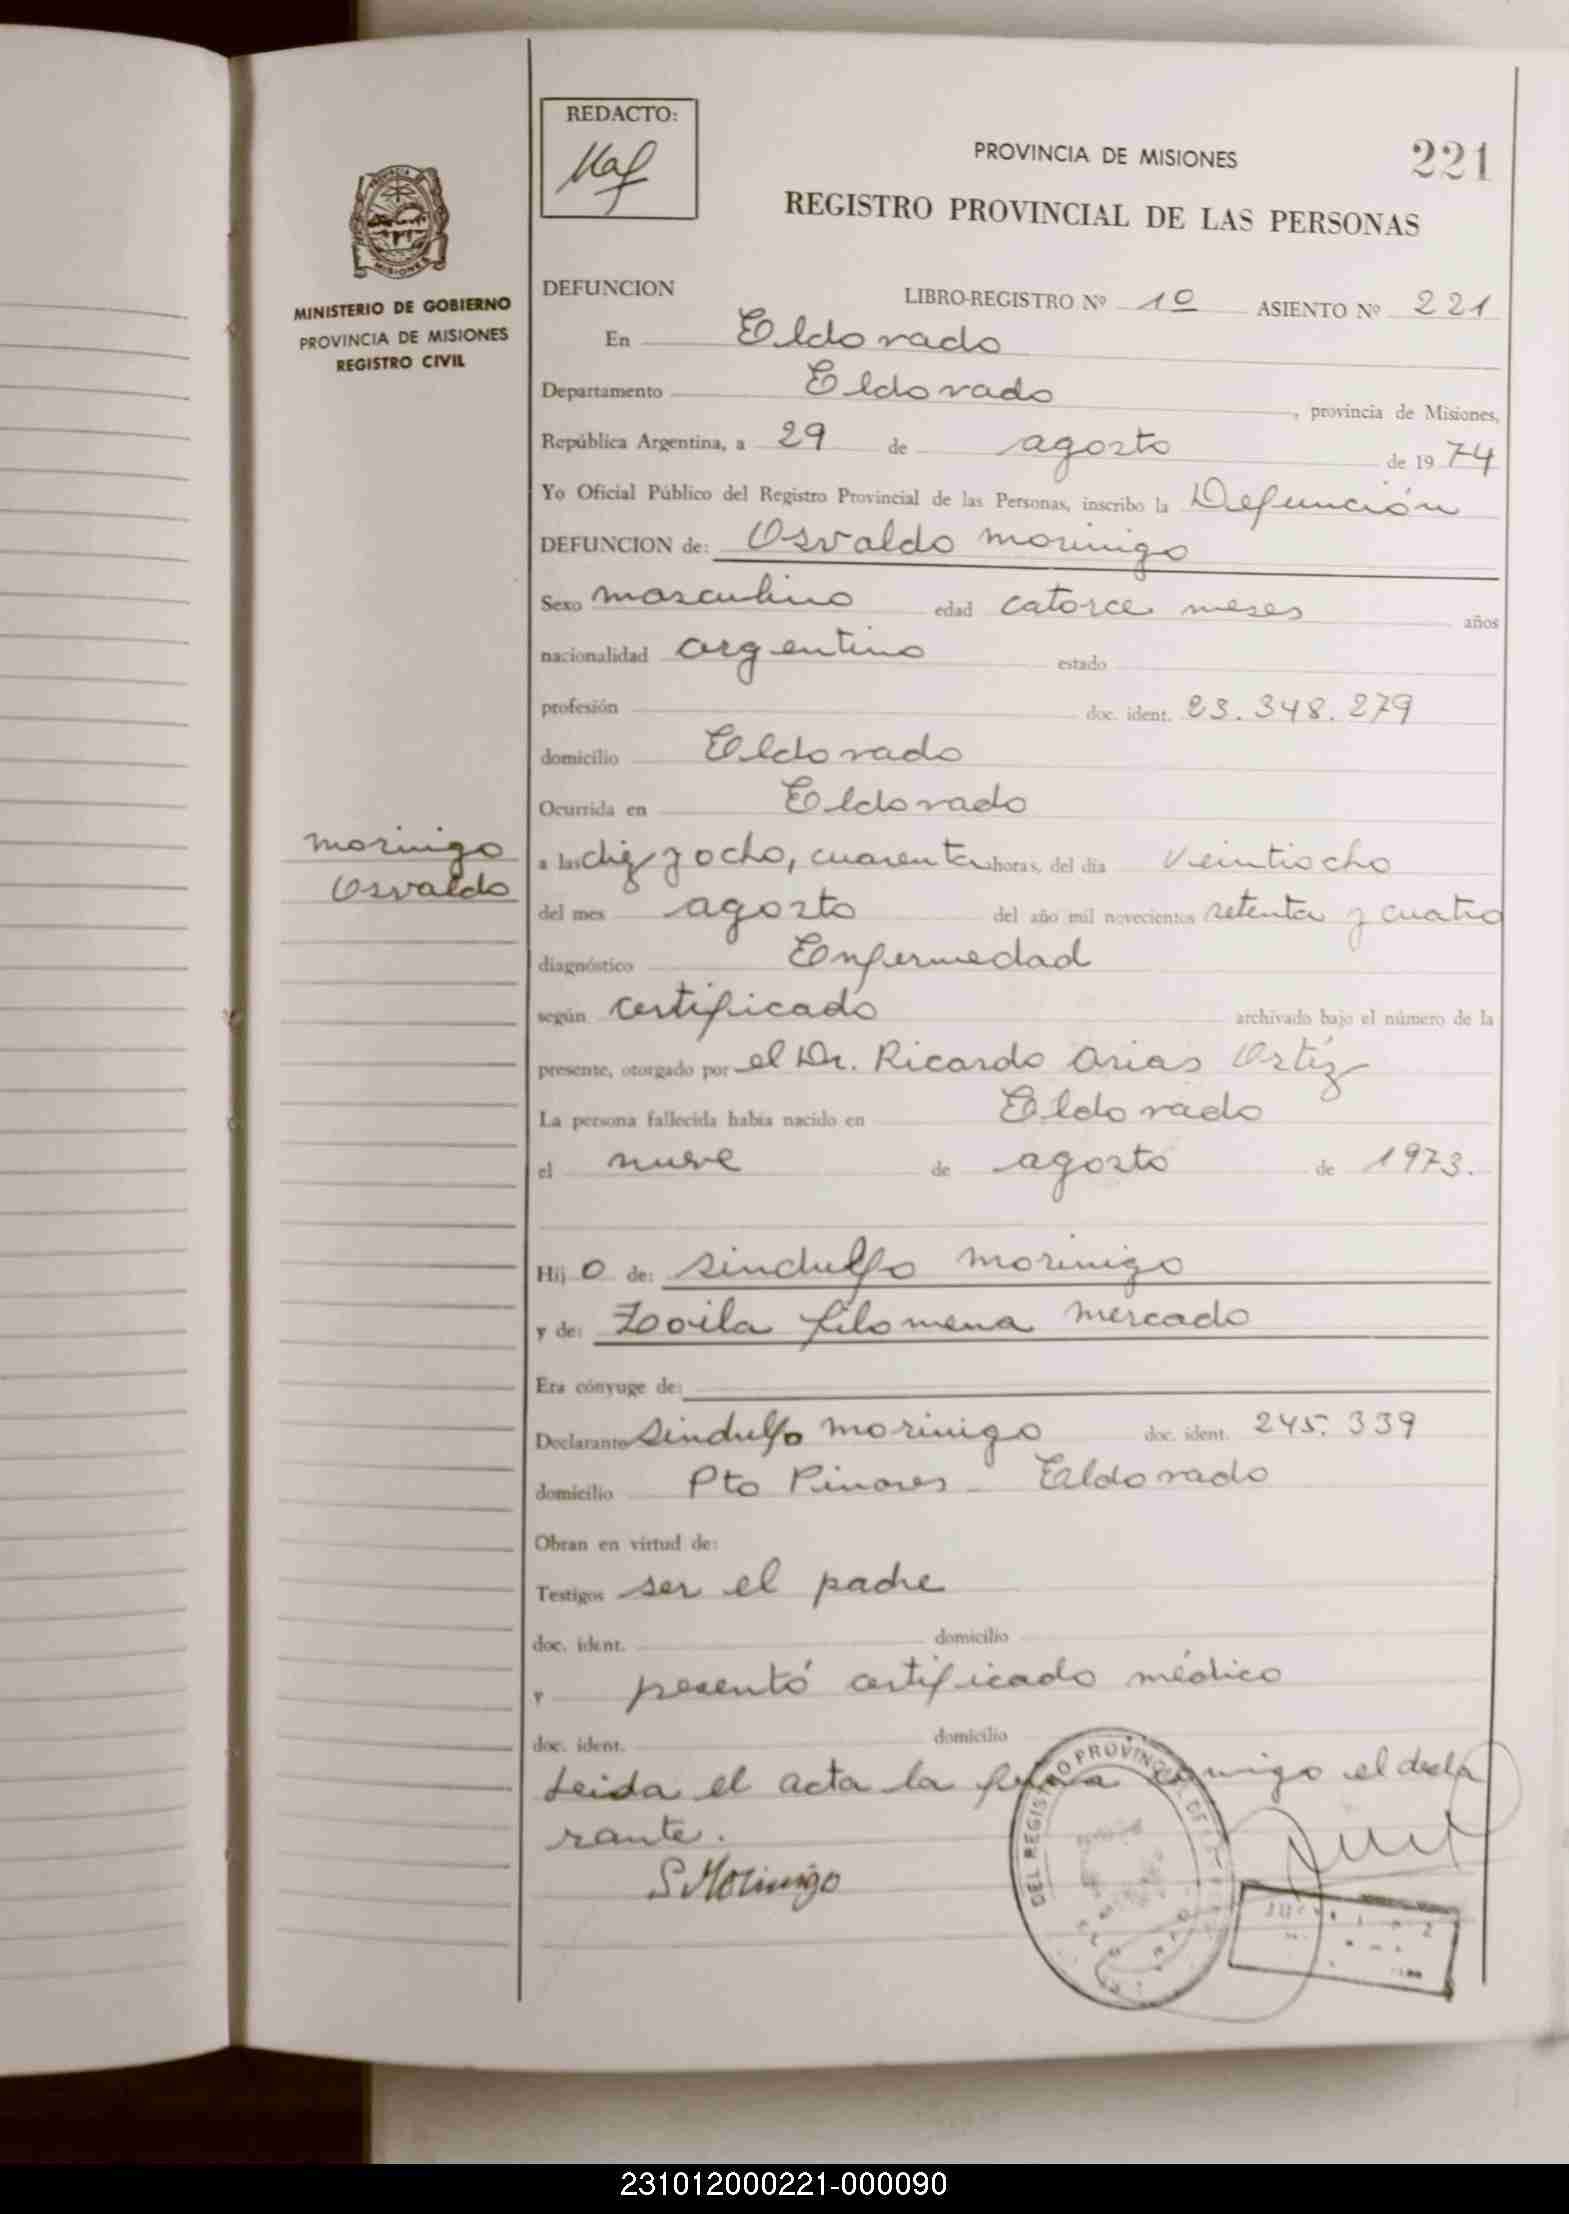 REDACTO:
PROVINCIA DE MISIONES
221
REGISTRO PROVINCIAL DE LAS PERSONAS
PROVINCIA
MISIONES
MINISTERIO DE GOBIERNO
PROVINCIA DE MISIONES
REGISTRO CIVIL
DEFUNCION LIBRO-REGISTRO Nº 1º ASIENTO Nº 221
En Eldorado
Departamento Eldorado, provincia de Misiones,
República Argentina, a 29 de agosto de 1974
Yo Oficial Público del Registro Provincial de las Personas, inscribo la Defunción
DEFUNCION de: Osvaldo morinigo
Sexo masculino edad catorce meses años
nacionalidad argentino estado
profesión doc. ident. 23.348.279
domicilio Eldorado
Ocurrida en Eldorado
morinigo
Osvaldo
a las diez y ocho, cuarenta horas, del día veintiocho
del mes agosto del año mil novecientos setenta y cuatro
diagnóstico Enfermedad
según certificado archivado bajo el número de la
presente, otorgado por el Dr. Ricardo Arias Ortíz
La persona fallecida había nacido en Eldorado
el nueve de agosto de 1973.
Hij o de: sindulfo morinigo
y de: Zoila filomena mercado
Era cónyuge de:
Declarante sindulfo morinigo doc. ident. 245.339
domicilio Pto Pinares - Eldorado
Obran en virtud de:
Testigos ser el padre
doc. ident. domicilio
y presentó certificado médico
doc. ident. domicilio
Leida el acta la firma conmigo el decla
rante.
S Morinigo
DEL REGISTRO PROVINCIAL DE
231012000221-000090